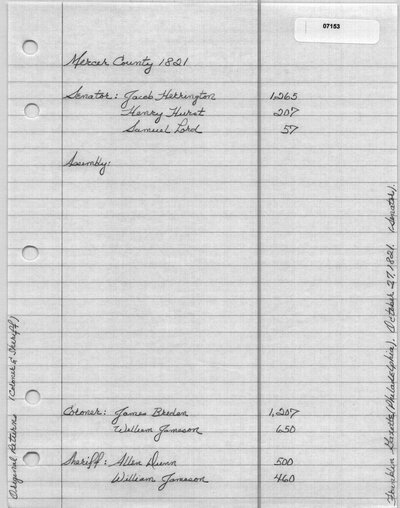 07153
Mercer County 1821
Senator: Jacob Herrington 1,265
Henry Hurst 207
Samuel Lord 57
Assembly:
Coroner: James Breden 1,207
William Jameson 650
Sheriff: Allen Dunn 500
William Jameson 460
Original Returns (Coroner & Sheriff)
Franklin Gazette (Philadelphia). October 27, 1821. (Senator).